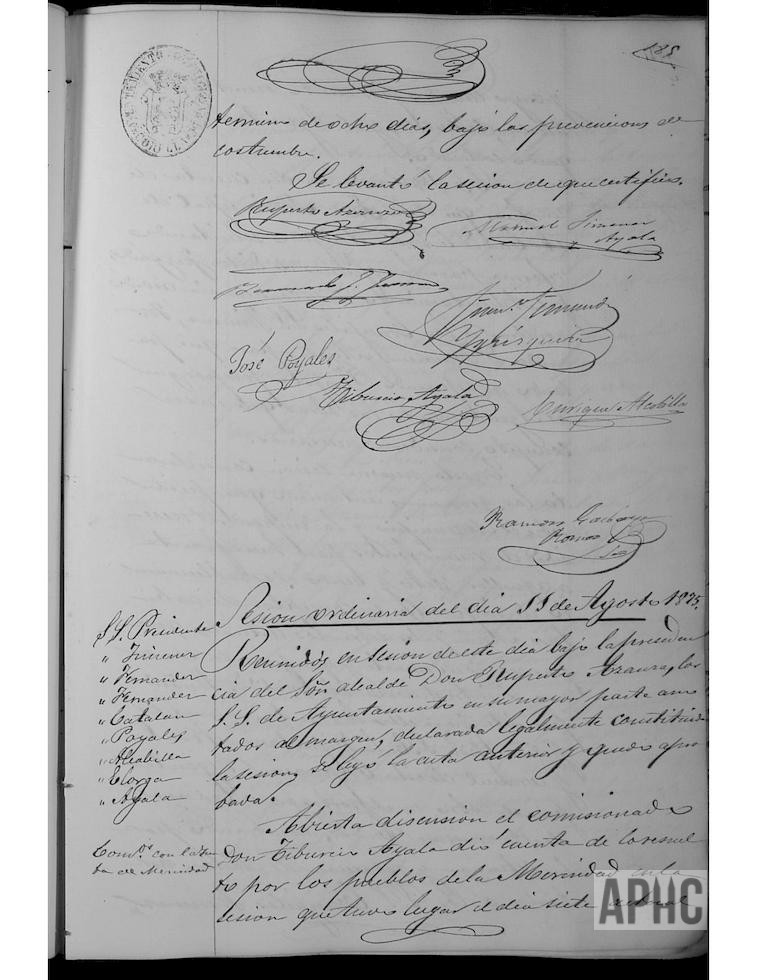 185
termino de ocho dias, bajo las prevenciones de
costumbre.
Se levantó la sesion de que certifico.
Ruperto Azanza
Manuel Jimenez
Ayala
José Poyales
Tiburcio Ayala
Enrique Alcobilla
Ramon
Ramos
Sesion ordinaria del dia 11 de Agosto 1895.
S.S. Presidente
" Jimenez
" Fernandez
" Fernandez
" Catalan
" Poyales
" Alcobilla
" Elorga
" Ayala
Reunidos en sesion de este dia bajo la presiden
cia del Sõr alcalde Don Ruperto Azanza, los
S.S. de Ayuntamiento en su mayor parte ano
tados al margen, declarada legalmente constituida
la sesion, se leyó la acta anterior y quedó apro
bada.
Com.on con la Jun
ta de Merindad
Abierta discusion el comisionado
Don Tiburcio Ayala dió cuenta de lo resuel
to por los pueblos de la Merindad en la
sesion que tuvo lugar el dia siete actual
APHC